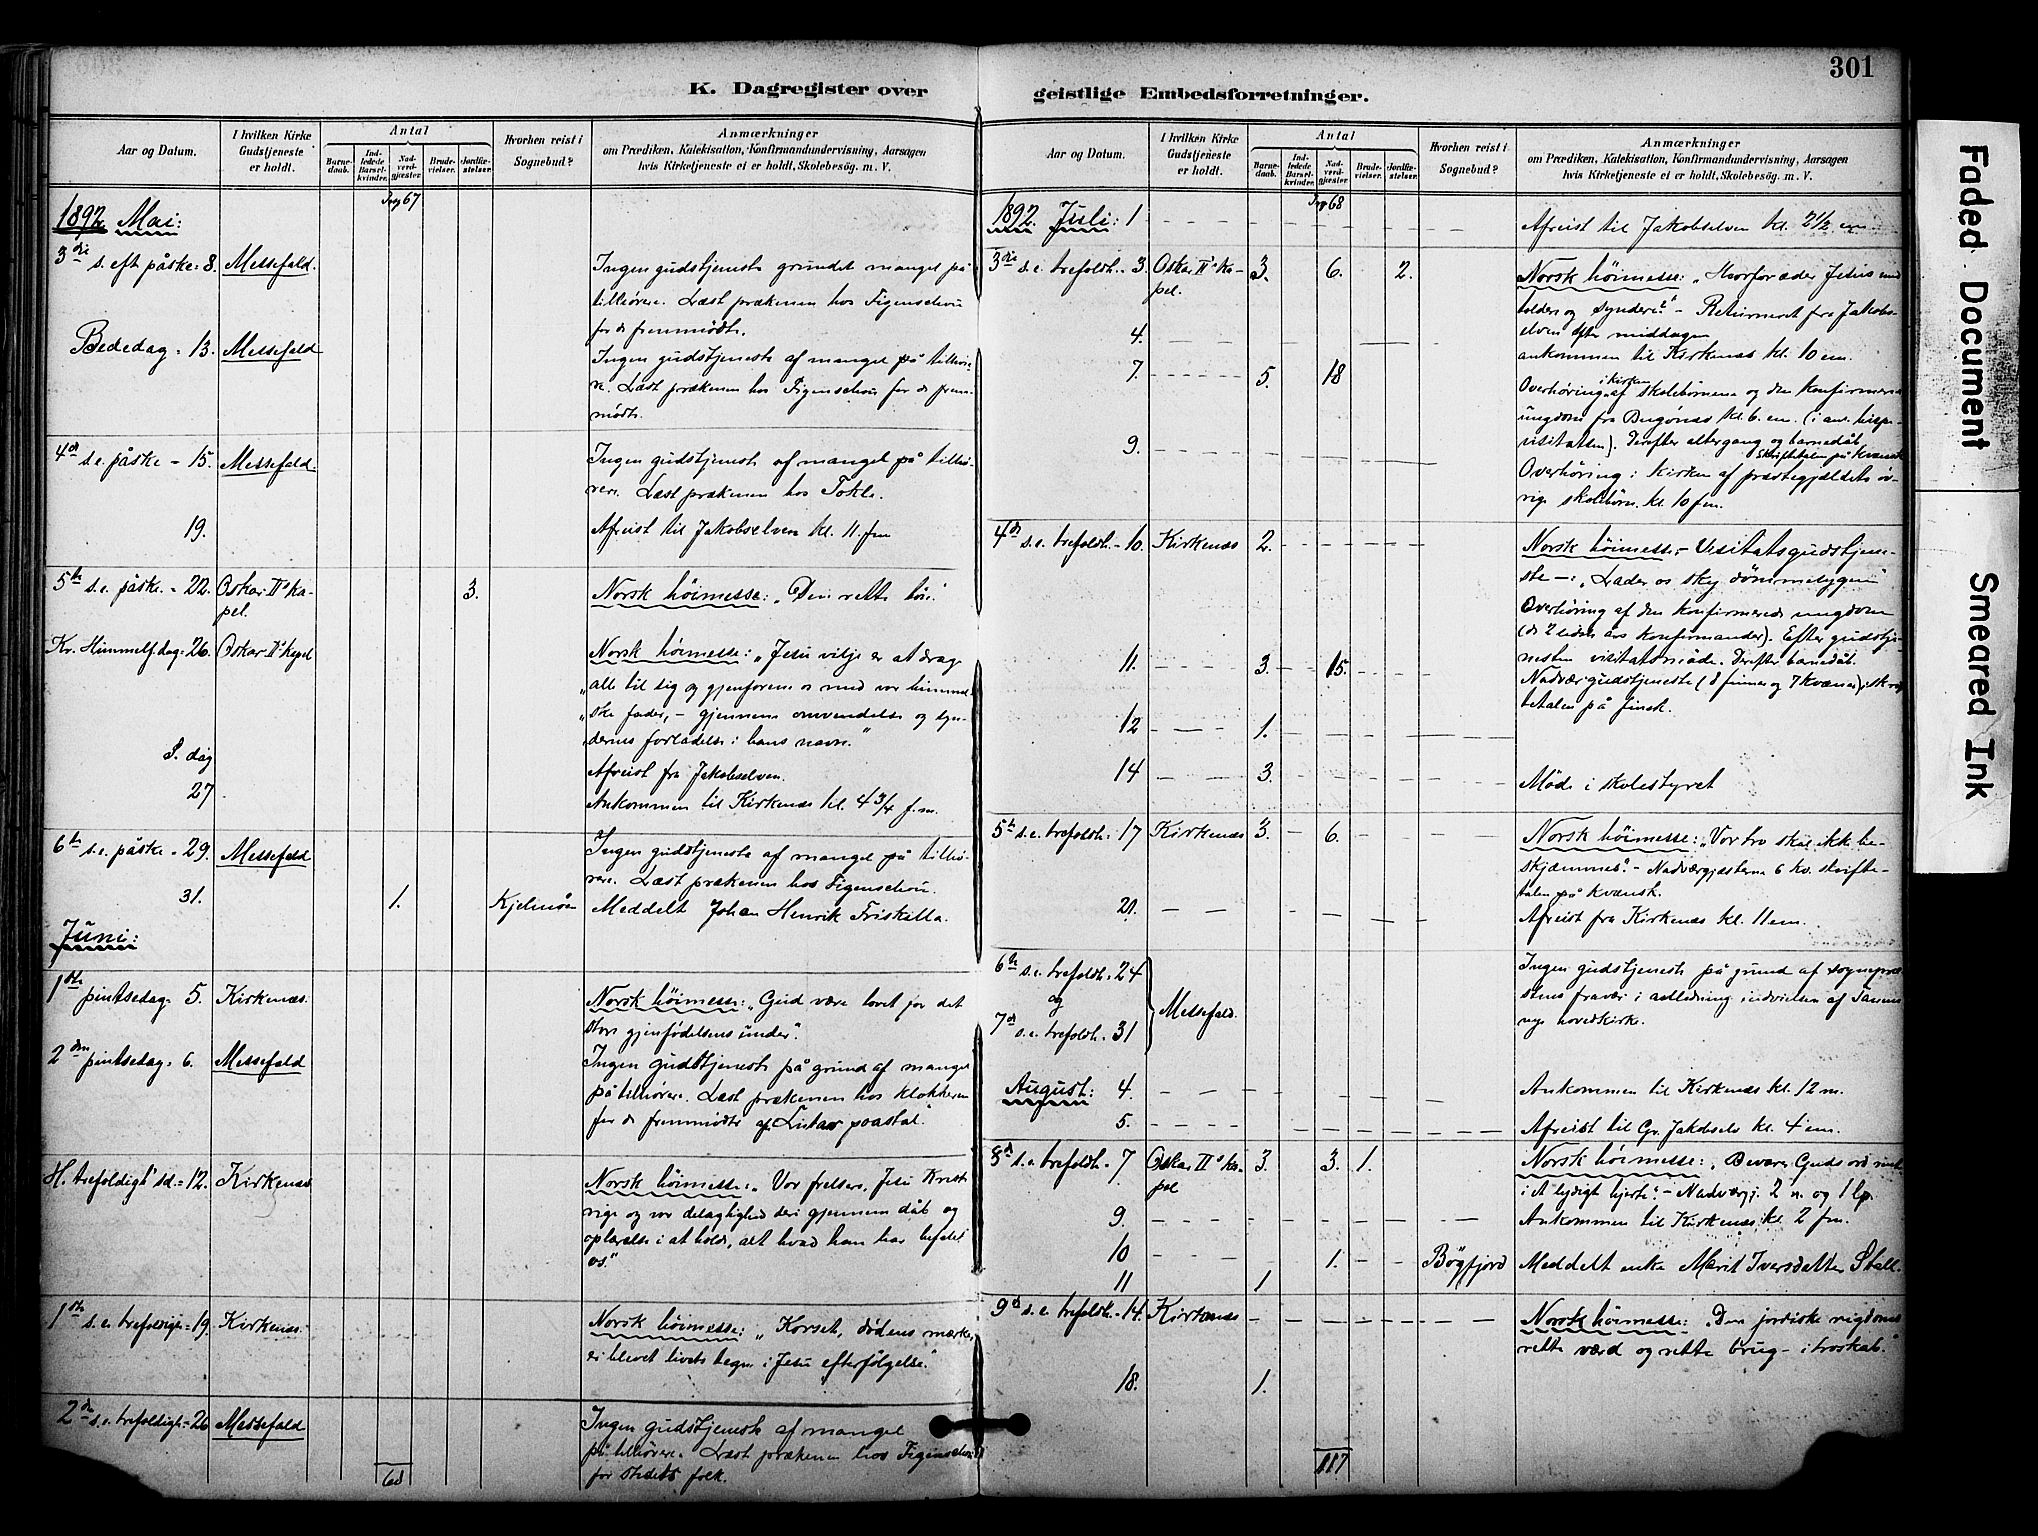 301
K. Dagregister over
geistlige Embedsforretninger.
Aar og Datum.
I hvilken Kirke
Gudstjeneste
er holdt.
Antal
Barne-
daab.
Ind-
ledede
Barsel-
kvinder.
Nad-
verd-
gjæster
Brude-
vielser.
Jordfæ-
stelser.
Hvorhen reist i
Sognebud?
Anmærkninger
om Prædiken, Katekisation, Konfirmandundervisning, Aarsagen
hvis Kirketjeneste ei er holdt, Skolebesög. m. V.
67
1892 Mai:
3die s. eft påske = 8. Messefald.
Ingen gudstjeneste grundet mangel på
tilhörere. Læst prækenen hos Figenschou
for de fremmödte.
Bededag = 13. Messefald
Ingen gudstjeneste af mangel på tilhö-
rere. Læst prækenen hos Figenschou for de frem-
mödte.
4de s.e. påske = 15. Messefald.
Ingen gudstjeneste af mangel på tilhö-
rere. Læst prækenen hos Tokle.
19.
Afreist til Jakobselven kl. 11 fm
5te s.e. påske. = 22. Oskar II's ka- 3. Norsk höimesse: „Den rette bön.
pel.
Kr. Himmelf.dag = 26. Oskar II's kapel
Norsk höimesse: „Jesu vilje er at drage
„alle til sig og gjenforene os med vor himmel-
„ske fader, – gjennem omvendelse og syn-
„dernes forladelse i hans navn."
S. dag
Afreist fra Jakobselven.
27.
Ankommen til Kirkenæs kl. 4 3/4 f.m.
6te s.e. påske = 29. Messefald
Ingen gudstjeneste af mangel på tilhö-
rere. Læst prækenen hos Figenschou.
31. 1. Kjelmöen Meddelt Johan Henrik Friskilla.
Juni:
1ste pintsedag = 5. Kirkenæs.
Norsk höimesse: „Gud være lovet for det
store gjenfödelsens under".
2den pintsedag = 6. Messefald
Ingen gudstjeneste på grund af mangel
på tilhörere. Læst prækenen hos klokkeren
for de fremmödte af „Linhavs postal."
H. trefoldigh. sd. = 12. Kirkenæs
Norsk höimesse: „Vor frelsers, Jesu Kristi
rige og vor delagtighed deri gjennem dåb og
oplærelse i at holde, alt hvad han har befalet
os."
1ste s.e. trefoldigh. = 19. Kirkenæs.
Norsk höimesse: „Korset, dödens mærke,
er blevet livets tegn i Jesu efterfölgelse."
2den s.e. trefoldigh. = 26 Messefald
Ingen gudstjeneste af mangel
på tilhörere. Læst prækenen hos Figenschou
for stedets folk.
68
Aar og Datum.
I hvilken Kirke
Gudstjeneste
er holdt.
Antal
Barne-
daab.
Ind-
ledede
Barsel-
kvinder.
Nad-
verd-
gjæster
Brude-
vielser.
Jordfæ-
stelser.
Hvorhen reist i
Sognebud?
Anmærkninger
om Prædiken, Katekisation, Konfirmandundervisning, Aarsagen
hvis Kirketjeneste ei er holdt, Skolebesög. m. V.
68
1892. Juli: 1
Afreist til Jakobselven kl. 2 1/2 em
3die s.e. trefoldh. = 3. Oskar II's ka- 3. 6. 2. Norsk höimesse: „Hvorfor æder Jesus med
pel.
toldere og syndere?" – Returneret fra Jakobs-
elven efter middagen
4.
ankommen til Kirkenæs kl. 10 em.
7. 5. 18
Overhöring i kirken af skolebörnene og den konfirmerede
ungdom fra Bugönæs kl. 6 em. (i anl. bispe-
visitatsen). Derefter altergang og barnedåb.
Skriftetalen på kvænsk
9.
Overhöring i kirken af præstegjældets öv-
rige skolebörn kl. 10 fm.
4de s.e. trefoldh. = 10. Kirkenæs 2.
Norsk höimesse. – Visitatsgudstjene-
ste –: „Lader os sky dömmesygen"
Overhöring af den konfirmerede ungdom
(de 2 sidste års konfirmander). Efter gudstje-
nesten visitatsmöde. Derefter barnedåb.
11. 3. 15.
Nadværgudstjeneste (8 finner og 7 kvæner), skrif-
tetalen på finsk.
12 1.
14 3.
Möde i skolestyret
5te s.e. trefoldh. = 17 Kirkenæs 3. 6.
Norsk höimesse: „Vor tro skal ikke be-
skjæmmes". – Nadværgjæsterne 6 kv. skrifte-
talen på kvænsk.
21.
Afreist fra Kirkenæs kl. 11 em.
6te s.e. trefoldh. = 24
og Messefald.
7de s.e. trefoldh. = 31
Ingen gudstjeneste på grund af sognepræ-
stens fravær i anledning indvielsen af Tanens
nye hovedkirke.
August: 4.
Ankommen til Kirkenæs kl. 12 m.
5.
Afreist til Gr. Jakobselv kl. 4 em.
8de s.e. trefoldh. = 7 Oskar II's ka- 3. 3. 1. Norsk höimesse: „Bevare Guds ord
pel
i et lydigt hjerte". – Nadværgj. 2 n. og 1 lp.
9.
Ankommen til Kirkenæs kl. 2 fm.
10 1. Bögfjord Meddelt enke Marit Iversdatter Stall.
11 1
9de s.e. trefoldh. = 14. Kirkenæs
Norsk höimesse: „Den jordiske rigdoms
rette værd og rette brug – i troskab."
18. 1.
117
Faded Document
Smeared Ink